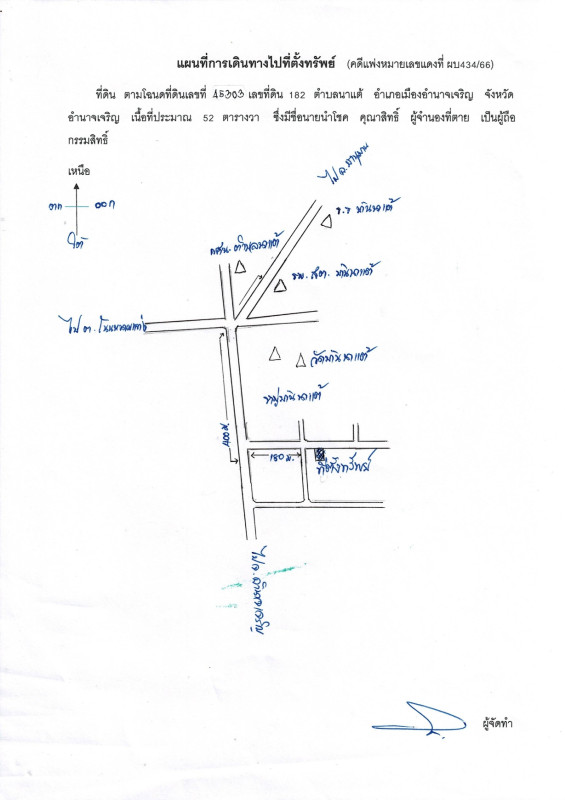 แผนที่การเดินทางไปที่ตั้งทรัพย์ (คดีแพ่งหมายเลขแดงที่ ผบ434/66)
ที่ดิน ตามโฉนดที่ดินเลขที่ 45303 เลขที่ดิน 182 ตำบลนาแต้ อำเภอเมืองอำนาจเจริญ จังหวัด
อำนาจเจริญ เนื้อที่ประมาณ 52 ตารางวา ซึ่งมีชื่อนายนำโชค คุณาสิทธิ์ ผู้จำนองที่ตาย เป็นผู้ถือ
กรรมสิทธิ์
เหนือ
ไป อ.ชานุมาน
ตก ออก
ร.ร บ้านนาแต้
ใต้
อบต. ตำบลนาแต้
รพ.สต. บ้านนาแต้
ไป ต.
วัดบ้านนาแต้
หมู่บ้านนาแต้
400 ม.
180 ม.
ที่ตั้งทรัพย์
ไป จ.อำนาจเจริญ
ผู้จัดทำ